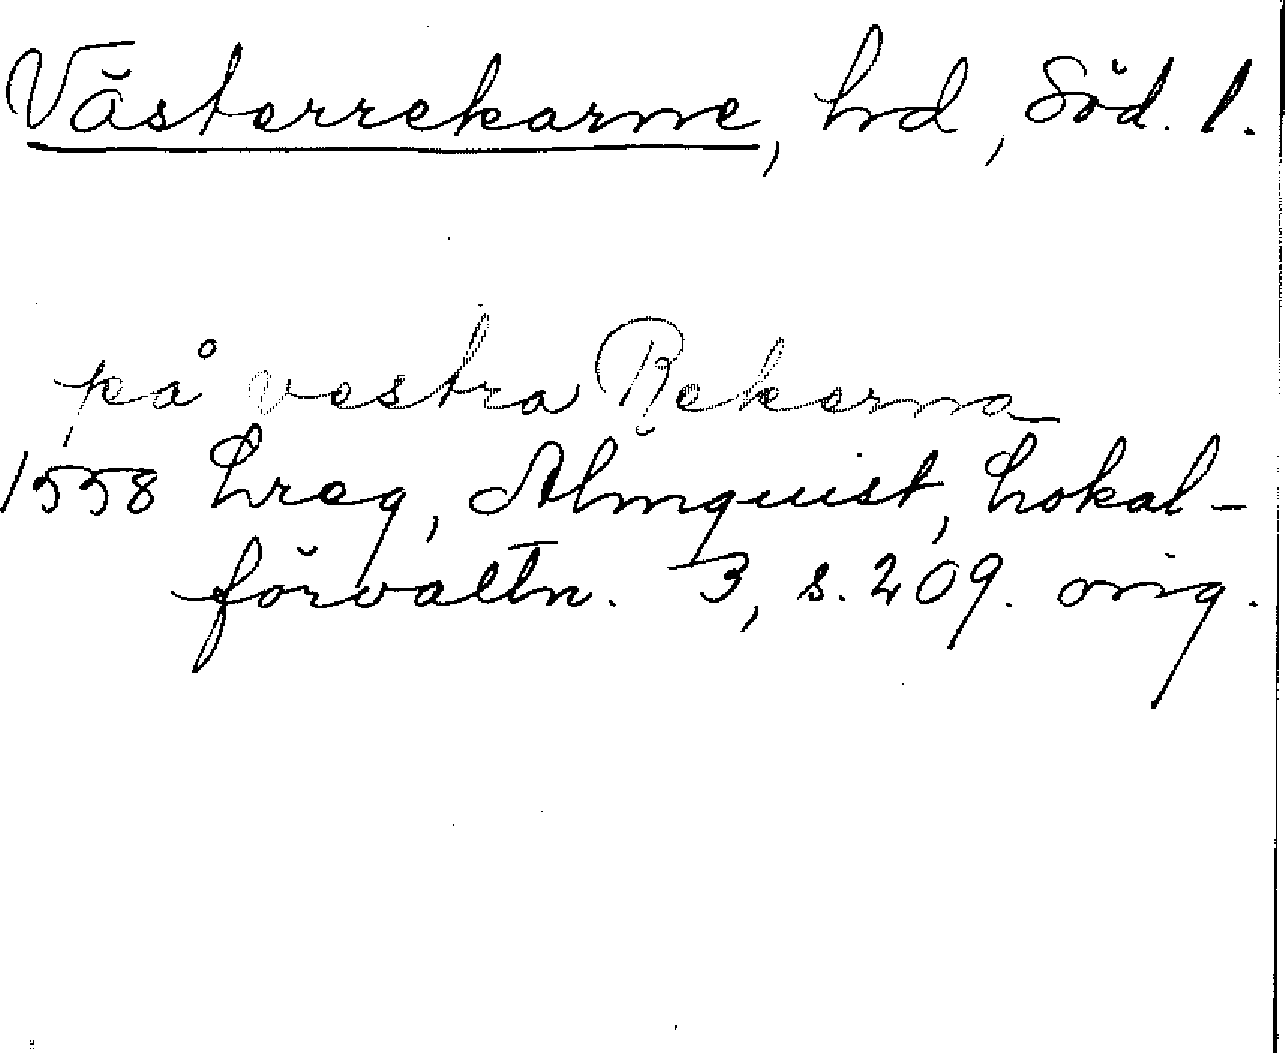 Västerrekarne, hd, Söd. l.
på vestra Rekarna
1558 Lreg, Almquist, Lokal-
förvaltn. 3, s. 209. orig.